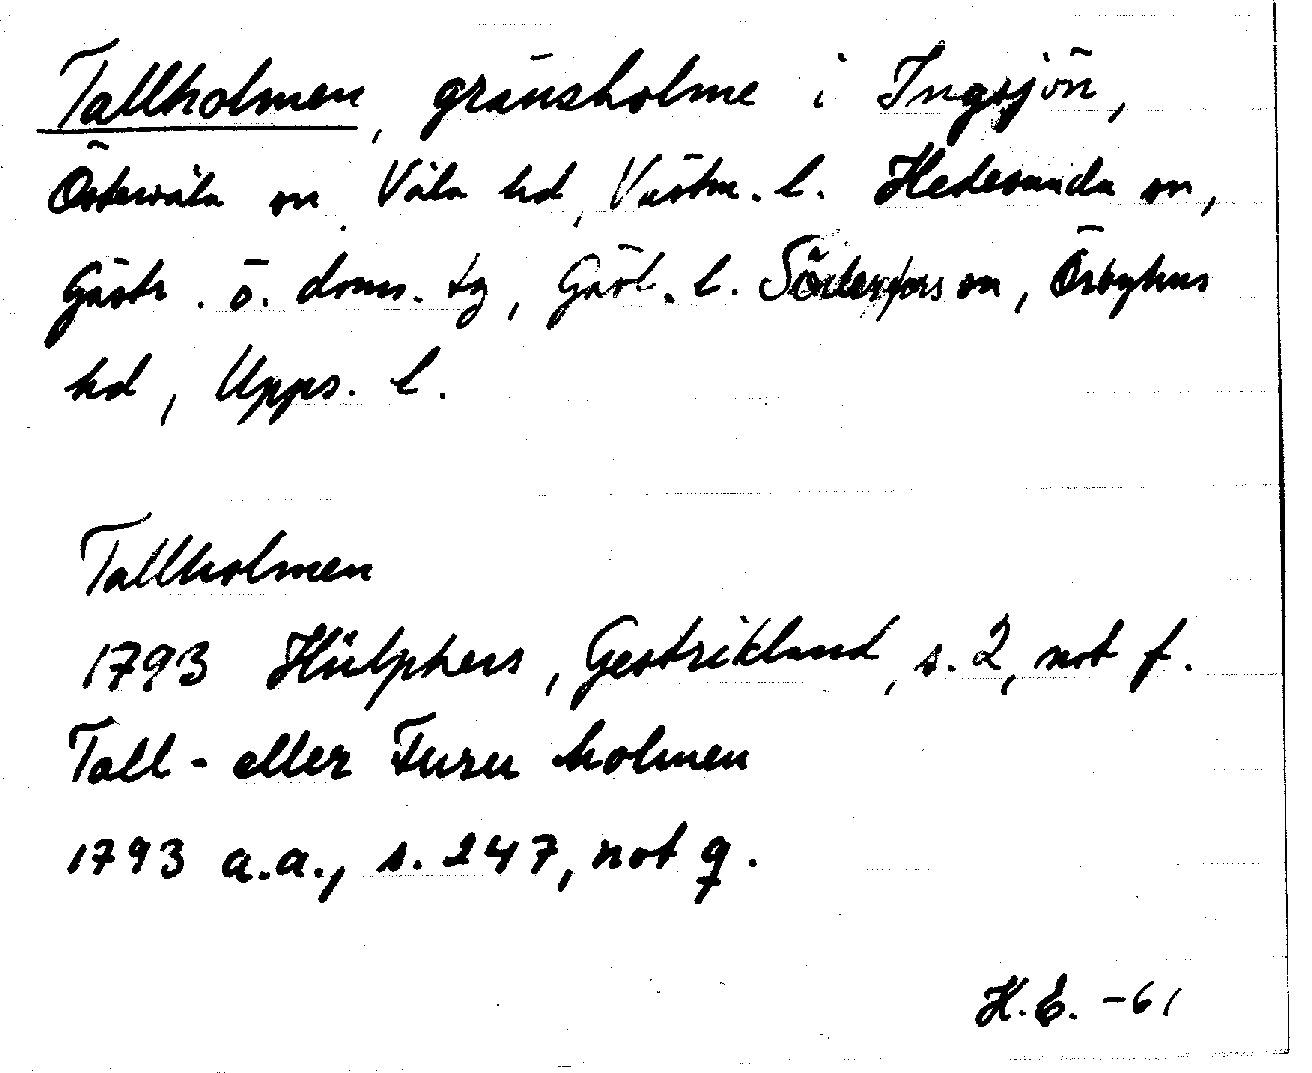 Tallholmen, gränsholme i Ingsjön,
Östervåla sn, Våla hd, Västm. l. Hedesunda sn,
Gästr. ö. doms. tg, Gävl. l. Söderfors sn, Örbyhus
hd, Upps. l.
Tallholmen
1793 Hülphers, Gestrikland, s. 2, not f.
Tall- eller Furu holmen
1793 a.a., s. 247, not q.
H.E. -61